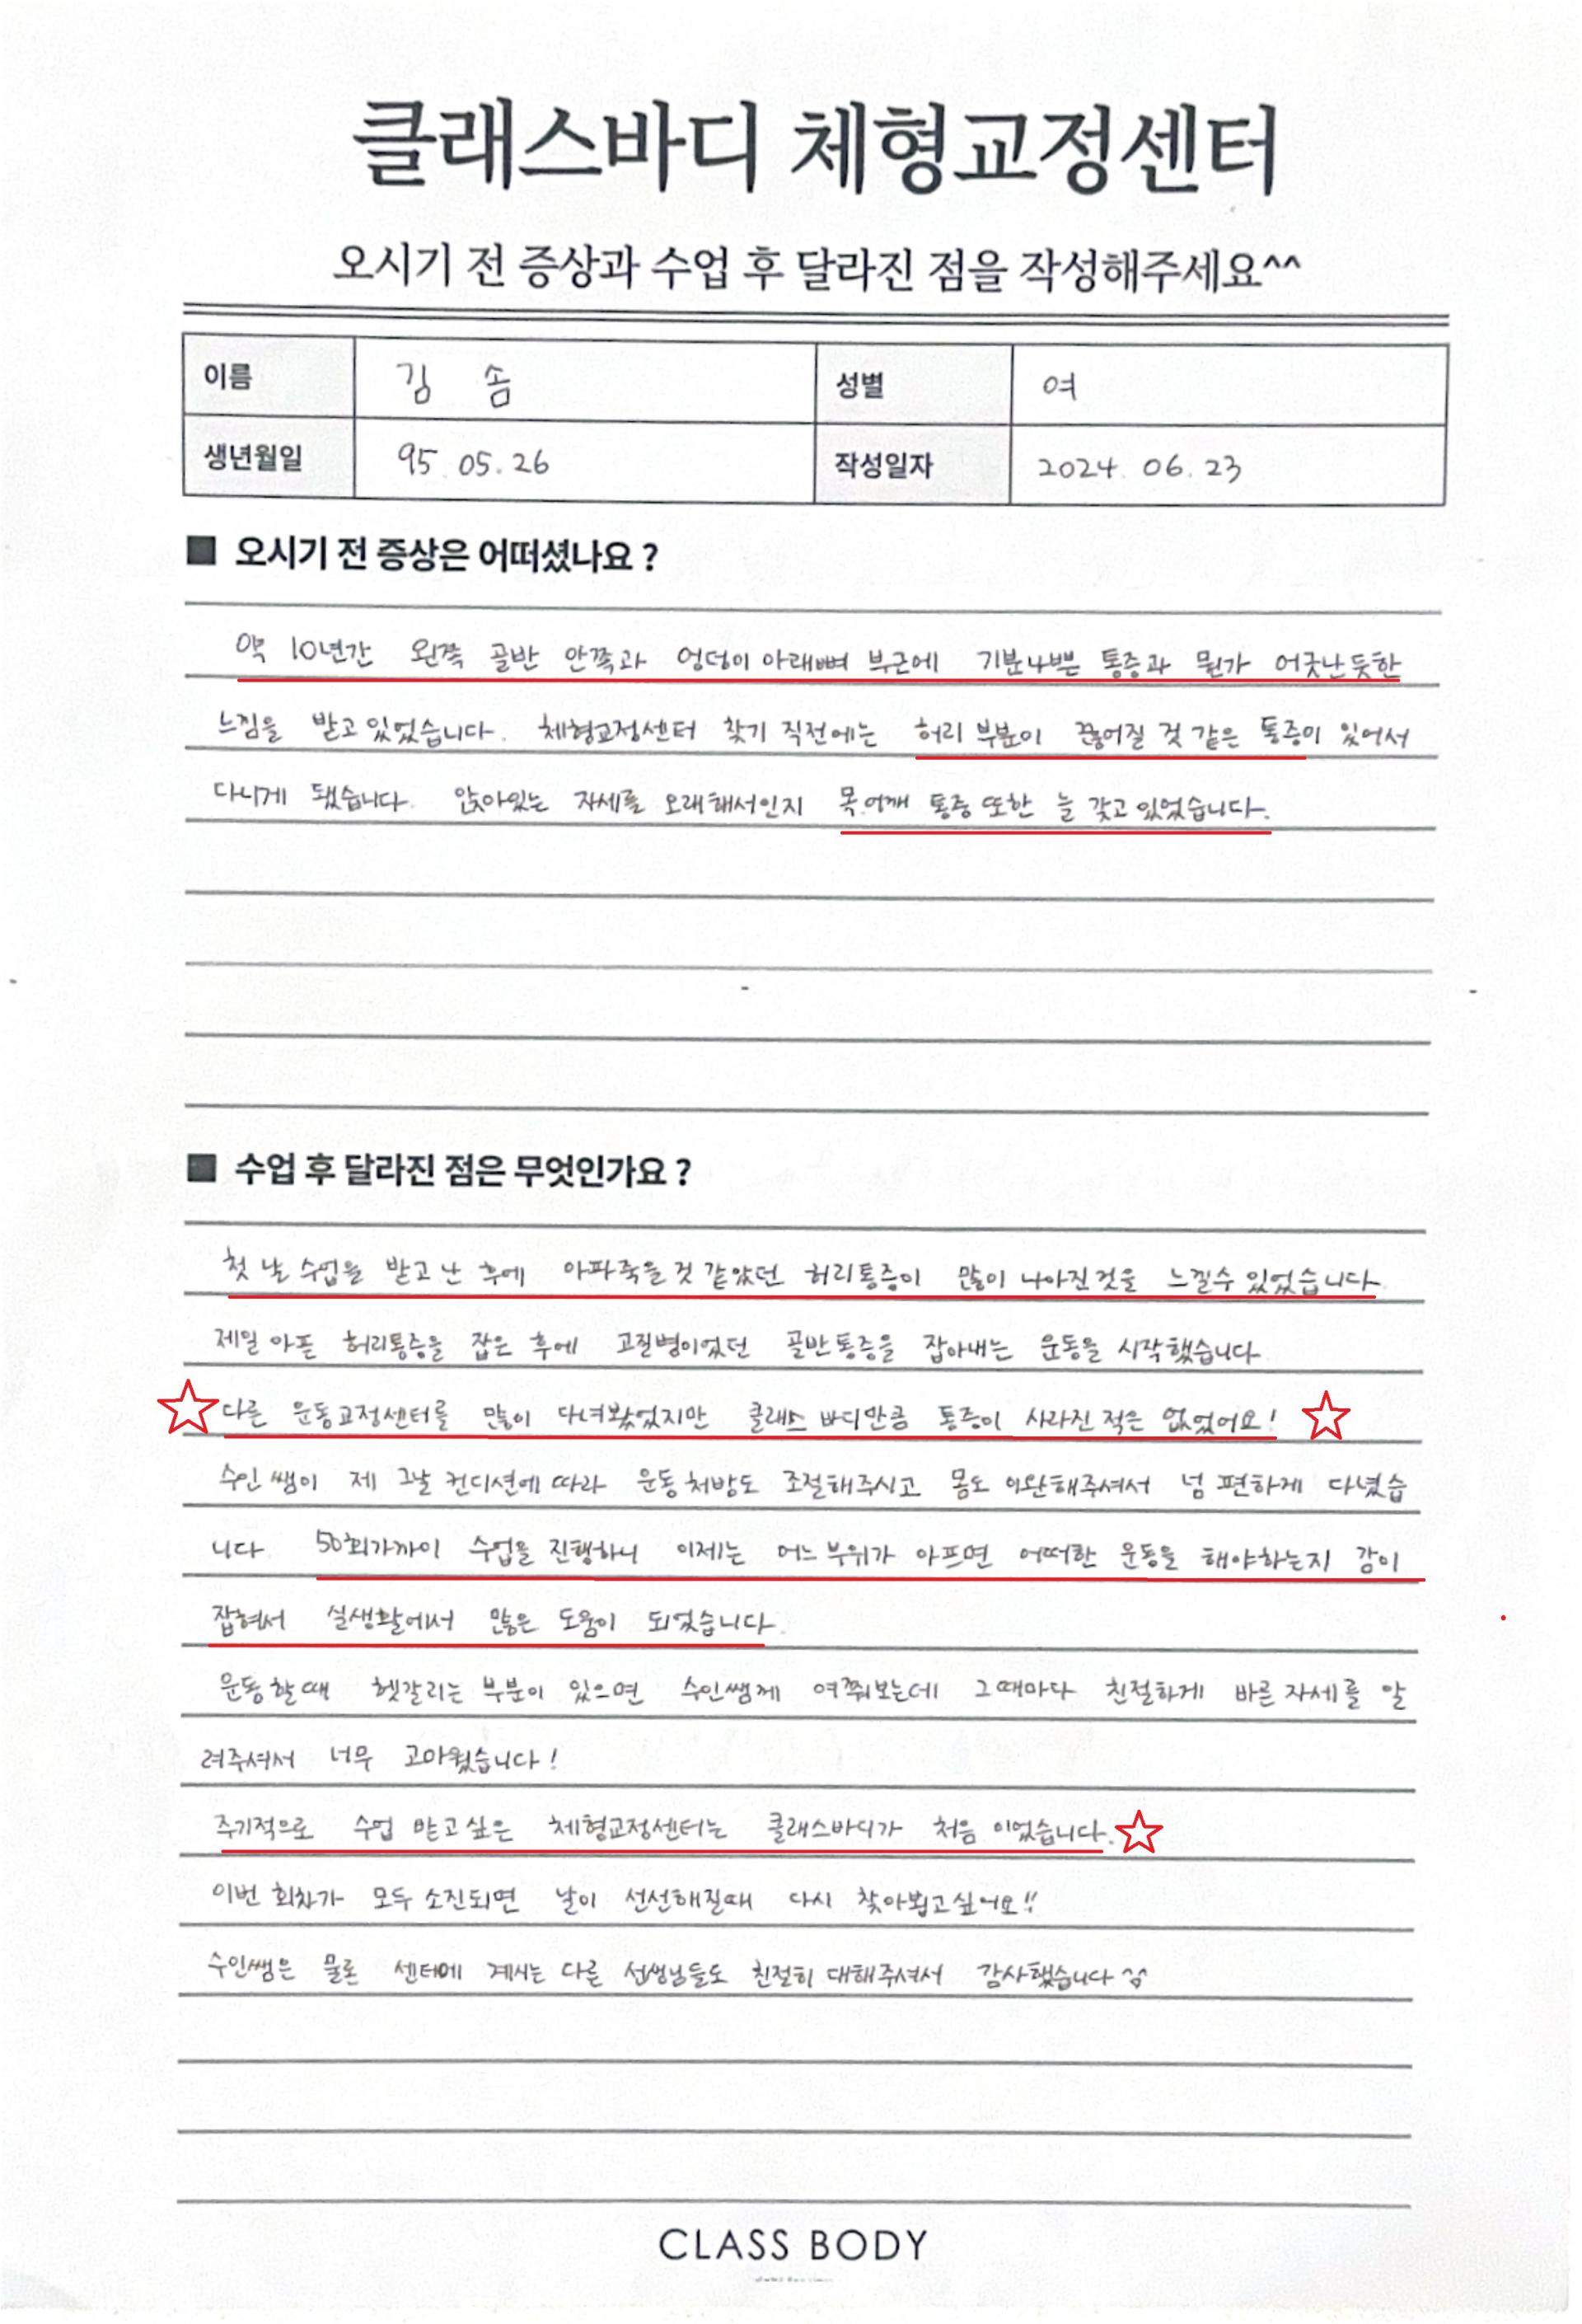 클래스바디 체형교정센터
오시기 전 증상과 수업 후 달라진 점을 작성해주세요^^
이름 김 솜 성별 여
생년월일 95.05.26 작성일자 2024.06.23
■ 오시기 전 증상은 어떠셨나요 ?
약 10년간 왼쪽 골반 안쪽과 엉덩이 아래뼈 부근에 기분나쁜 통증과 뭔가 어긋난듯한
느낌을 받고있었습니다. 체형교정센터 찾기 직전에는 허리 부분이 끊어질 것 같은 통증이 있어서
다니게 됐습니다. 앉아있는 자세를 오래해서인지 목.어깨 통증 또한 늘 갖고있었습니다.
■ 수업 후 달라진 점은 무엇인가요 ?
첫 날 수업을 받고 난 후에 아파죽을것 같았던 허리통증이 많이 나아진것을 느낄수있었습니다.
제일 아픈 허리통증을 잡은 후에 고질병이었던 골반통증을 잡아내는 운동을 시작했습니다
☆다른 운동교정센터를 많이 다녀봤었지만 클래스 바디만큼 통증이 사라진 적은 없었어요! ☆
수인 쌤이 제 그날 컨디션에 따라 운동 처방도 조절해주시고 몸도 이완해주셔서 넘 편하게 다녔습
니다 50회가까이 수업을 진행하니 이제는 어느 부위가 아프면 어떠한 운동을 해야하는지 감이
잡혀서 실생활에서 많은 도움이 되었습니다.
운동할때 헷갈리는 부분이 있으면 수인쌤께 여쭤보는데 그때마다 친절하게 바른 자세를 알
려주셔서 너무 고마웠습니다!
주기적으로 수업 받고싶은 체형교정센터는 클래스바디가 처음 이었습니다.☆
이번 회차가 모두 소진되면 날이 선선해질때 다시 찾아뵙고싶어요!!
수인쌤은 물론 센터에 계시는 다른 선생님들도 친절히 대해주셔서 감사했습니다^^
CLASS BODY